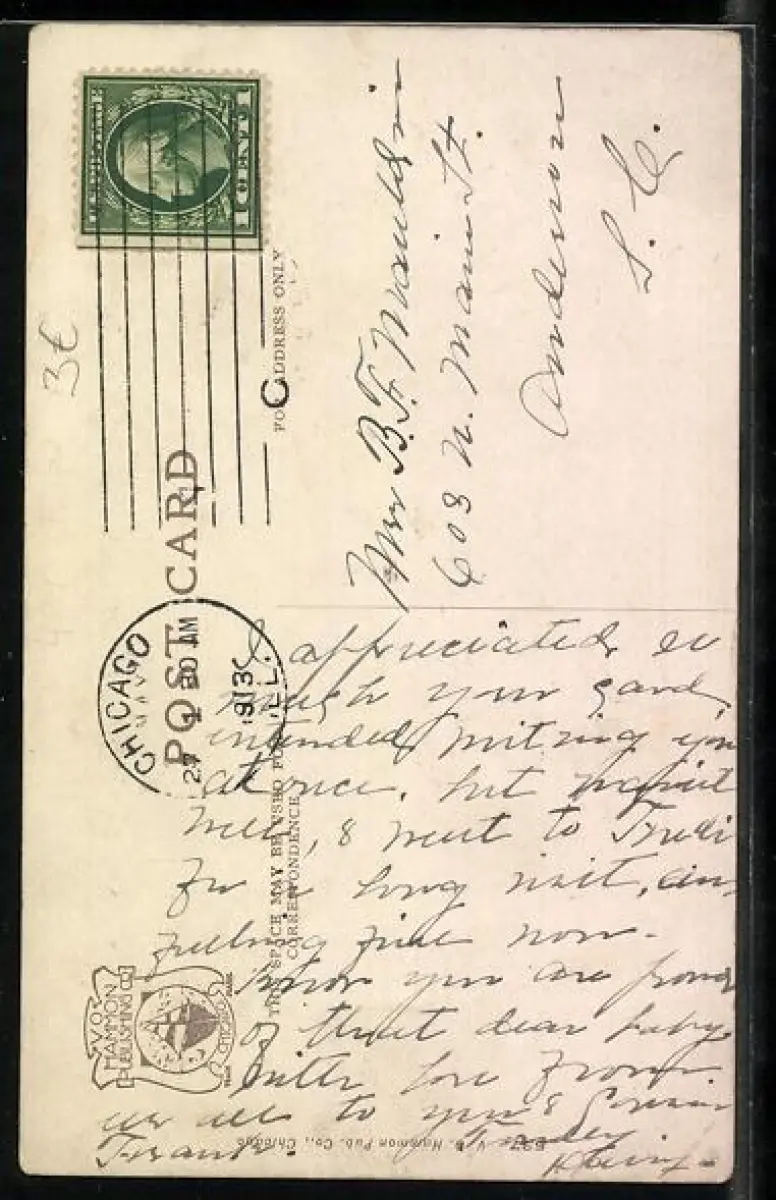 POST CARD
CHICAGO
ILL.
MAY
27
30 AM
1913
1 CENT 1
FOR ADDRESS ONLY
C
3¢
Mrs B.F. Mauldin
603 N. Main St.
Anderson
S. C.
THIS SPACE MAY BE USED FOR
CORRESPONDENCE
I appreciated so
much your card,
intended writing you
at once. but wasn't
well, & went to
for a long visit, am
feeling fine now.
Know you are proud
of that dear baby.
With love from
us all to you &
Frank.
V.O.
HAMMON
PUBLISHING CO.
CHICAGO
TRADE MARK
V. O. Hammon Pub. Co., Chicago